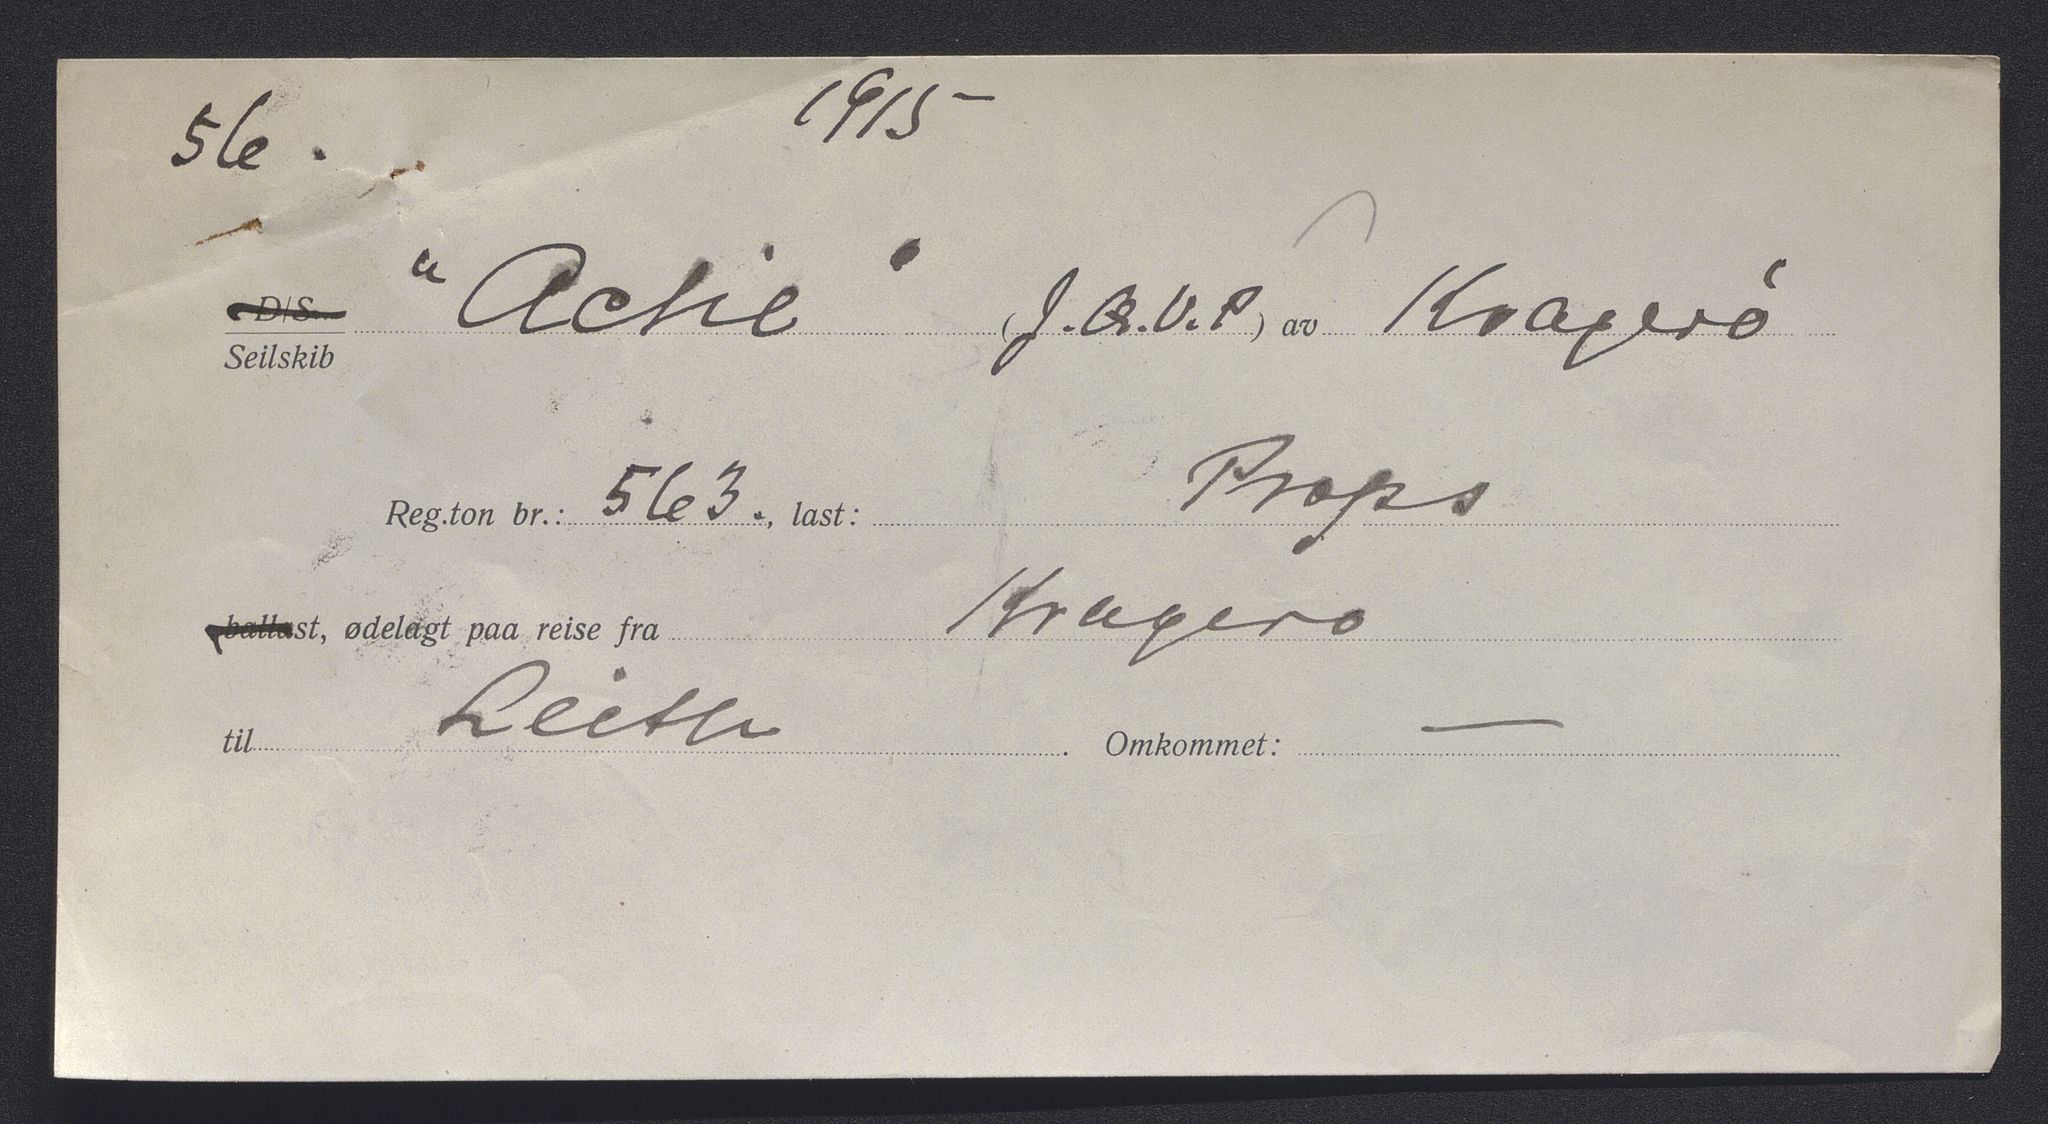 56. 1915
D/S
Seilskib "Actie" (J.Q.V.P) av Kragerö
Reg.ton br.: 563., last: Props
ballast, ødelagt paa reise fra Kragero
til Leith. Omkommet: —